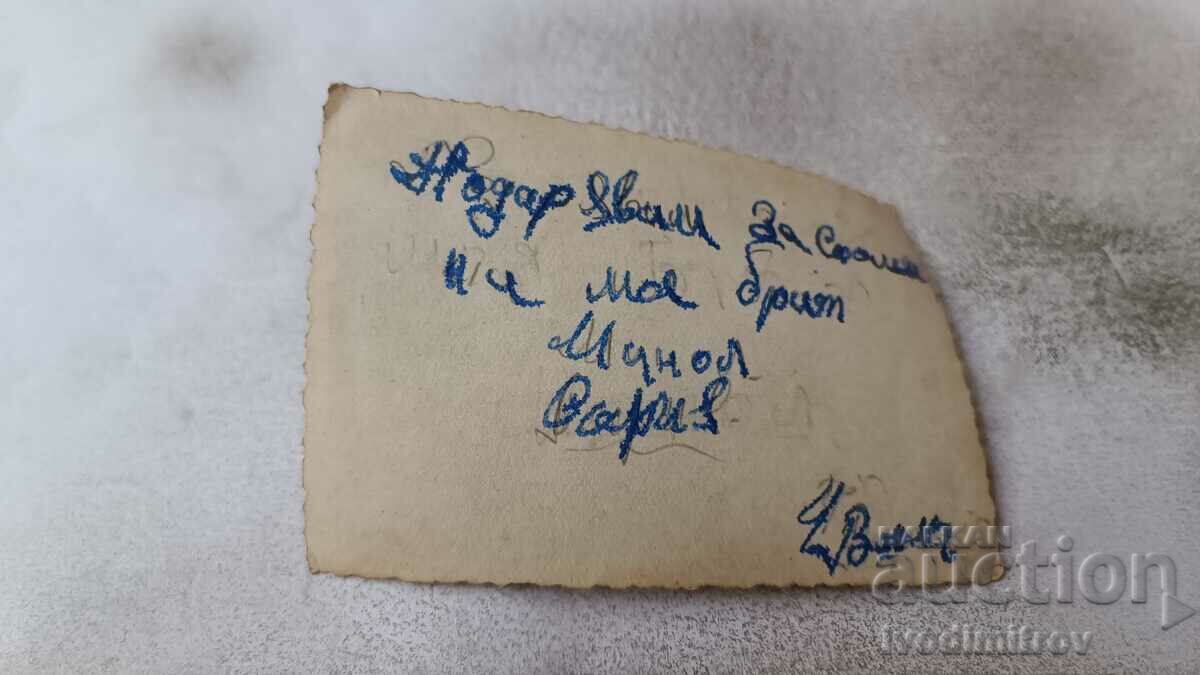 Подарявам за спомен
на мое брат
Манол
Сарив
BALKAN
auction
ivodimitrov